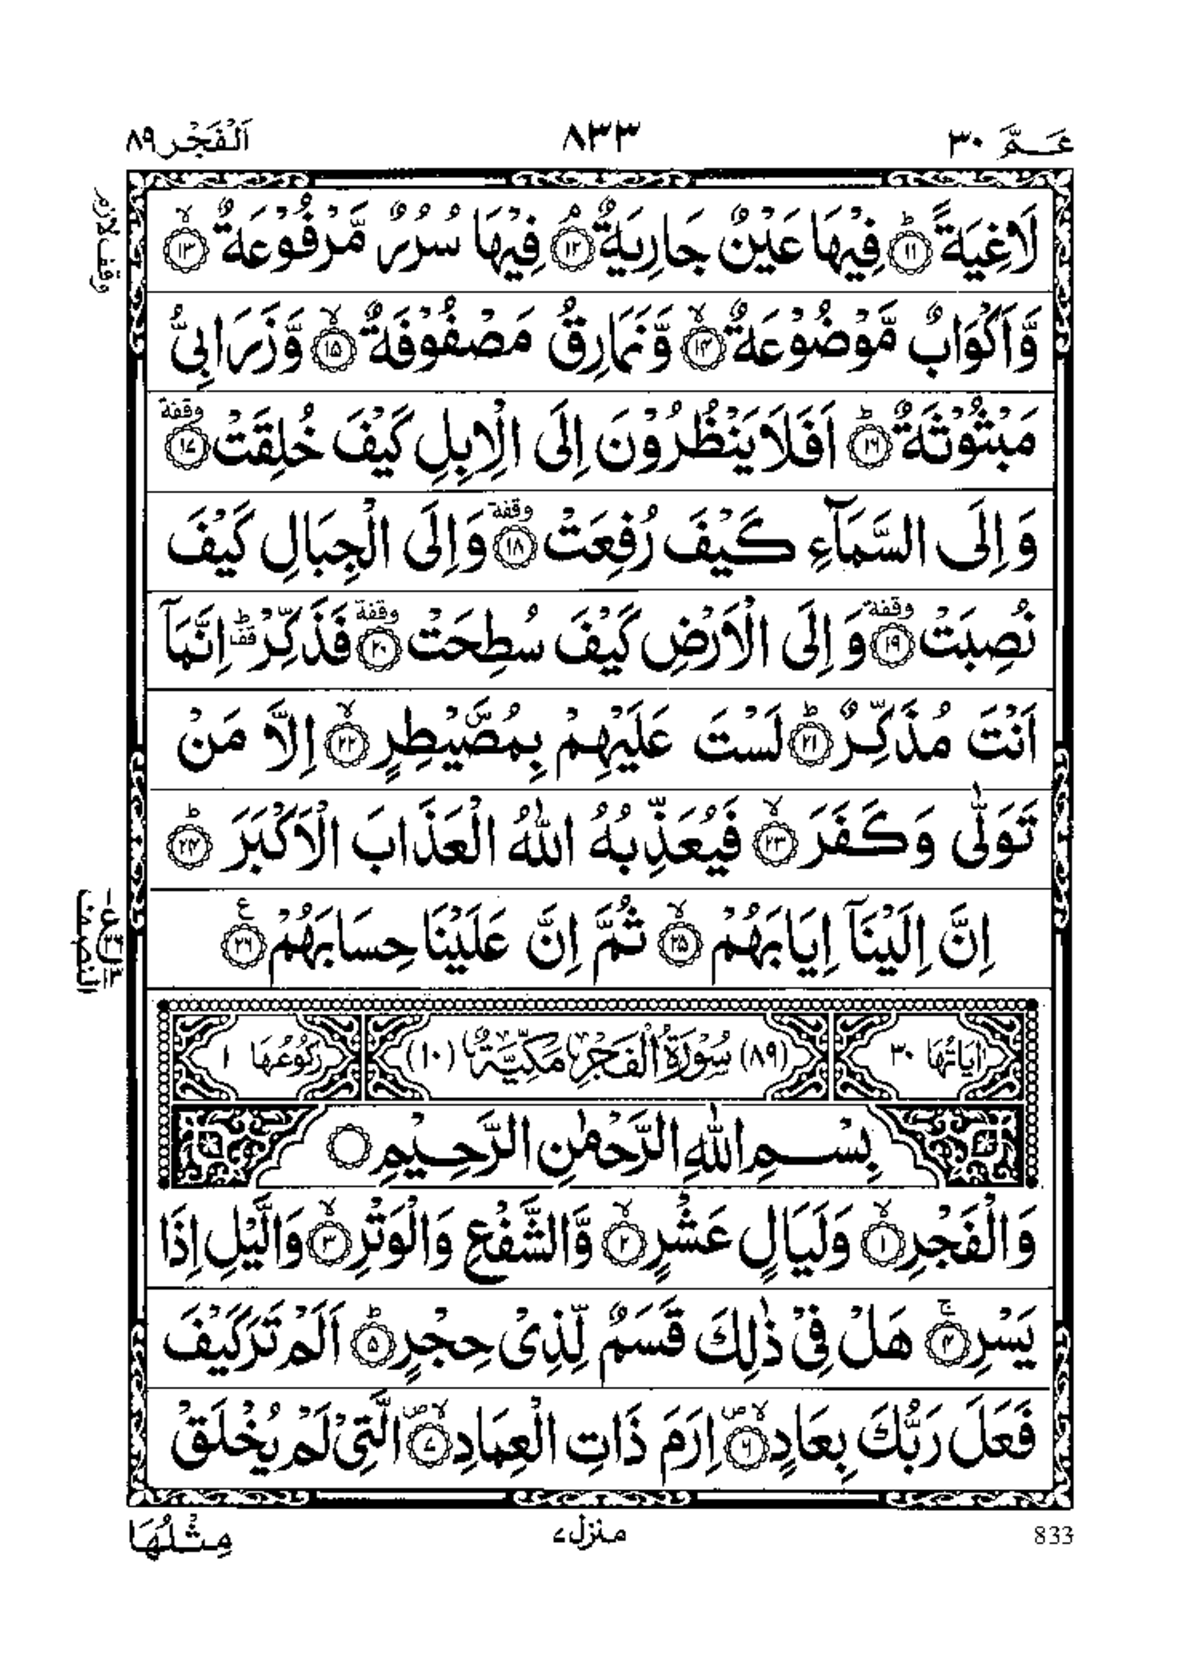 عَـمَّ ٣٠
٨٣٣
اَلْفَجْر ٨٩
لَاغِيَةً ؕ ﴿۱۱﴾ فِيْهَا عَيْنٌ جَارِيَةٌ ۘ ﴿۱۲﴾ فِيْهَا سُرُرٌ مَّرْفُوْعَةٌ ۙ ﴿۱۳﴾
وقف لازم
وَّاَكْوَابٌ مَّوْضُوْعَةٌ ۙ ﴿۱۴﴾ وَّنَمَارِقُ مَصْفُوْفَةٌ ۙ ﴿۱۵﴾ وَّزَرَابِىُّ
مَبْثُوْثَةٌ ؕ ﴿۱۶﴾ اَفَلَا يَنْظُرُوْنَ اِلَى الْاِبِلِ كَيْفَ خُلِقَتْ وقفة ﴿۱۷﴾
وَاِلَى السَّمَآءِ كَيْفَ رُفِعَتْ وقفة ﴿۱۸﴾ وَاِلَى الْجِبَالِ كَيْفَ
نُصِبَتْ وقفة ﴿۱۹﴾ وَاِلَى الْاَرْضِ كَيْفَ سُطِحَتْ وقفة ﴿۲۰﴾ فَذَكِّرْ ؕ قف اِنَّمَآ
اَنْتَ مُذَكِّرٌ ؕ ﴿۲۱﴾ لَسْتَ عَلَيْهِمْ بِمُصَۜيْطِرٍ ۙ ﴿۲۲﴾ اِلَّا مَنْ
تَوَلّٰى وَكَفَرَ ۙ ﴿۲۳﴾ فَيُعَذِّبُهُ اللّٰهُ الْعَذَابَ الْاَكْبَرَ ؕ ﴿۲۴﴾
اِنَّ اِلَيْنَآ اِيَابَهُمْ ۙ ﴿۲۵﴾ ثُمَّ اِنَّ عَلَيْنَا حِسَابَهُمْ ع ﴿۲۶﴾
النصف
اٰيَاتُهَا ٣٠
(٨٩) سُوْرَةُ الْفَجْرِ مَكِّيَّةٌ (١٠)
رُكُوْعُهَا ١
بِسْــمِ اللّٰهِ الرَّحْمٰنِ الرَّحِـيْمِ
وَالْفَجْرِ ۙ ﴿۱﴾ وَلَيَالٍ عَشْرٍ ۙ ﴿۲﴾ وَّالشَّفْعِ وَالْوَتْرِ ۙ ﴿۳﴾ وَالَّيْلِ اِذَا
يَسْرِ ۚ ﴿۴﴾ هَلْ فِىْ ذٰلِكَ قَسَمٌ لِّذِىْ حِجْرٍ ؕ ﴿۵﴾ اَلَمْ تَرَ كَيْفَ
فَعَلَ رَبُّكَ بِعَادٍ ۙ ص ﴿۶﴾ اِرَمَ ذَاتِ الْعِمَادِ ۙ ص ﴿۷﴾ الَّتِىْ لَمْ يُخْلَقْ
مِثْلُهَا
منزل ٧
833